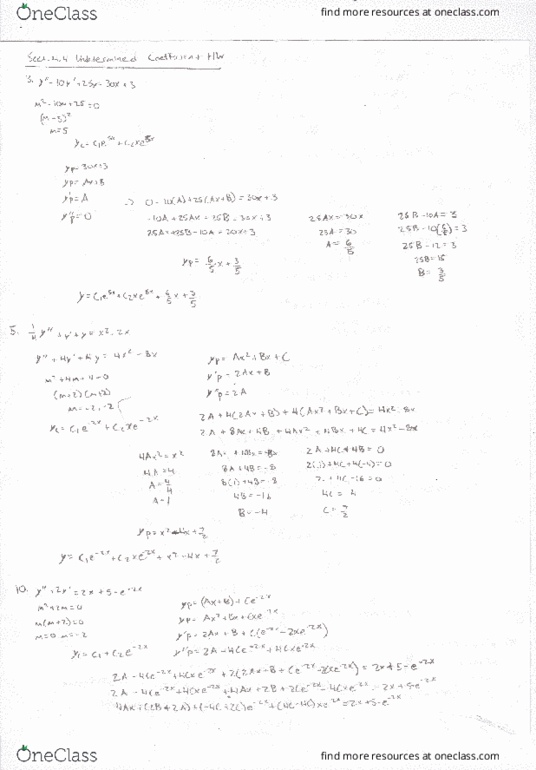 OneClass
find more resources at oneclass.com
Sect. 4.4 Undetermined Coefficient HW
3. y'' - 10y' + 25y = 30x + 3
m² - 10m + 25 = 0
(m - 5)²
m = 5
yc = c1e^5x + c2xe^5x
yp = 30x + 3
yp = Ax + B
y'p = A
y''p = 0
→ 0 - 10(A) + 25(Ax + B) = 30x + 3
-10A + 25Ax + 25B = 30x + 3
25Ax + 25B - 10A = 30x + 3
25Ax = 30x
25A = 30
A = 6/5
25B - 10A = 3
25B - 10(6/5) = 3
25B - 12 = 3
25B = 15
B = 3/5
yp = 6/5 x + 3/5
y = c1e^5x + c2xe^5x + 6/5 x + 3/5
5. 1/4 y'' + y' + y = x² - 2x
y'' + 4y' + 4y = 4x² - 8x
m² + 4m + 4 = 0
(m+2)(m+2)
m = -2, -2
yc = c1e^-2x + c2xe^-2x
yp = Ax² + Bx + C
y'p = 2Ax + B
y''p = 2A
2A + 4(2Ax + B) + 4(Ax² + Bx + C) = 4x² - 8x
2A + 8Ax + 4B + 4Ax² + 4Bx + 4C = 4x² - 8x
4Ax² = x²
4A = 4
A = 4/4
A = 1
8Ax + 4Bx = -8x
8A + 4B = -8
8(1) + 4B = -8
4B = -16
B = -4
2A + 4C + 4B = 0
2(1) + 4C + 4(-4) = 0
2 + 4C - 16 = 0
C = 7/2
yp = x² - 4x + 7/2
y = c1e^-2x + c2xe^-2x + x² - 4x + 7/2
10. y'' + 2y' = 2x + 5 - e^-2x
m² + 2m = 0
m(m+2) = 0
m = 0 m = -2
y1 = c1 + c2e^-2x
yp = (Ax + B) + Ce^-2x
yp = Ax² + Bx + Cxe^-2x
y'p = 2Ax + B + C(e^-2x - 2xe^-2x)
y''p = 2A - 4Ce^-2x + 4Cxe^-2x
2A - 4Ce^-2x + 4Cxe^-2x + 2(2Ax + B + Ce^-2x - 2Cxe^-2x) = 2x + 5 - e^-2x
2A - 4Ce^-2x + 4Cxe^-2x + 4Ax + 2B + 2Ce^-2x - 4Cxe^-2x = 2x + 5 - e^-2x
4Ax + (2B + 2A) + (-4C + 2C)e^-2x + (4C - 4C)xe^-2x = 2x + 5 - e^-2x
OneClass
find more resources at oneclass.com